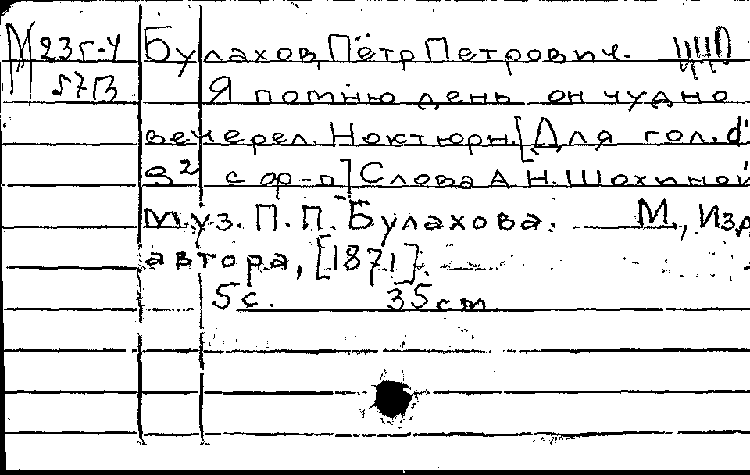 М 235-4 Булахов, Пётр Петрович.
57B Я помню день он чудно
вечерел. Ноктюрн. [Для гол. d'
с ф-п] Слова А.Н. Шохиной
муз. П.П. Булахова. М., Изд
автора, [1871].
5 с. 35 cm